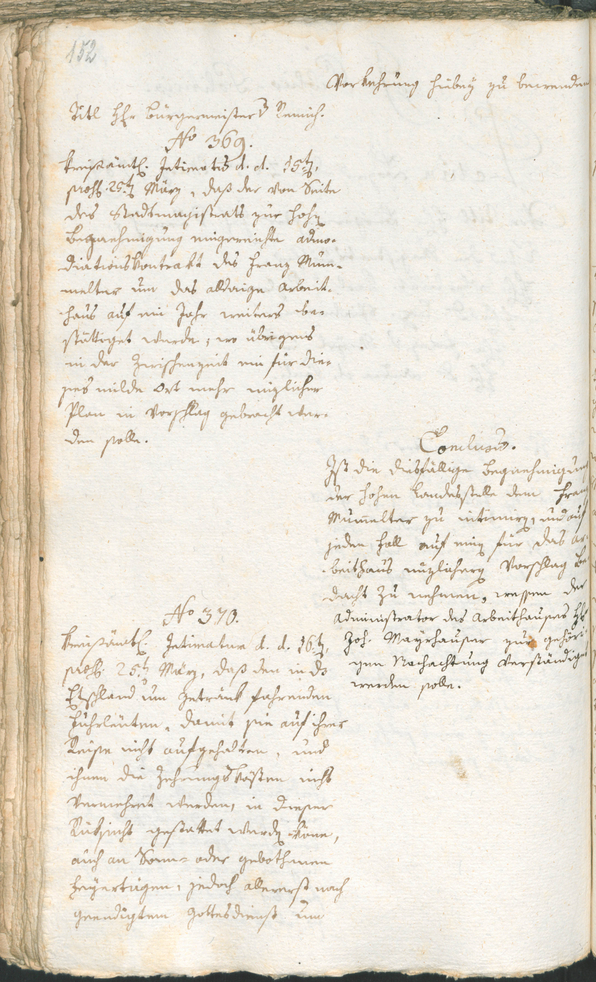 152
Vorkehrung hiebey zu verwenden
Titl Hhr Burgermeister v Remich.
No 369.
Kreißämtl. Intimatum d. d. 15ten
prosp. 25ten März, daß der von Seite
des Stadtmagistrats zur hohen
Begnehmigung eingereichte admo-
diations Kontrakt des Franz Mum-
melter um das alldaige Arbeit-
haus auf ein Jahr weiters be-
stättiget wurde; wo übrigens
in der Zwischenzeit ein für die-
ses milde Ort mehr nüzlicher
Plan in Vorschlag gebracht wer-
den solle.
Conclusum.
Ist die diesfällige Begnehmigung
der hohen Landesstelle dem Franz
Mummelter zu intimiren, und auf
jeden Fall auf einen für das Ar-
beithaus nüzlichern Vorschlag Be-
dacht zu nehmen, wessen der
Administrator des Arbeithauses Hr
Joh. Mayrhauser zur gehöri-
gen Nachachtung verständiget
werden solle.
No 370.
Kreißämtl. Intimatum d. d. 16ten
prosp. 25ten März, daß den in das
Etschland um Getränk fahrenden
Fuhrleuten, damit sie auf ihrer
Reise nicht aufgehalten, und
ihnen die Zehrungskösten nicht
vermehret werden, in dieser
Rüksicht gestattet werden könne,
auch an Sonn- oder gebothenen
Feyertägen, jedoch allererst nach
geendigtem Gottesdienst um